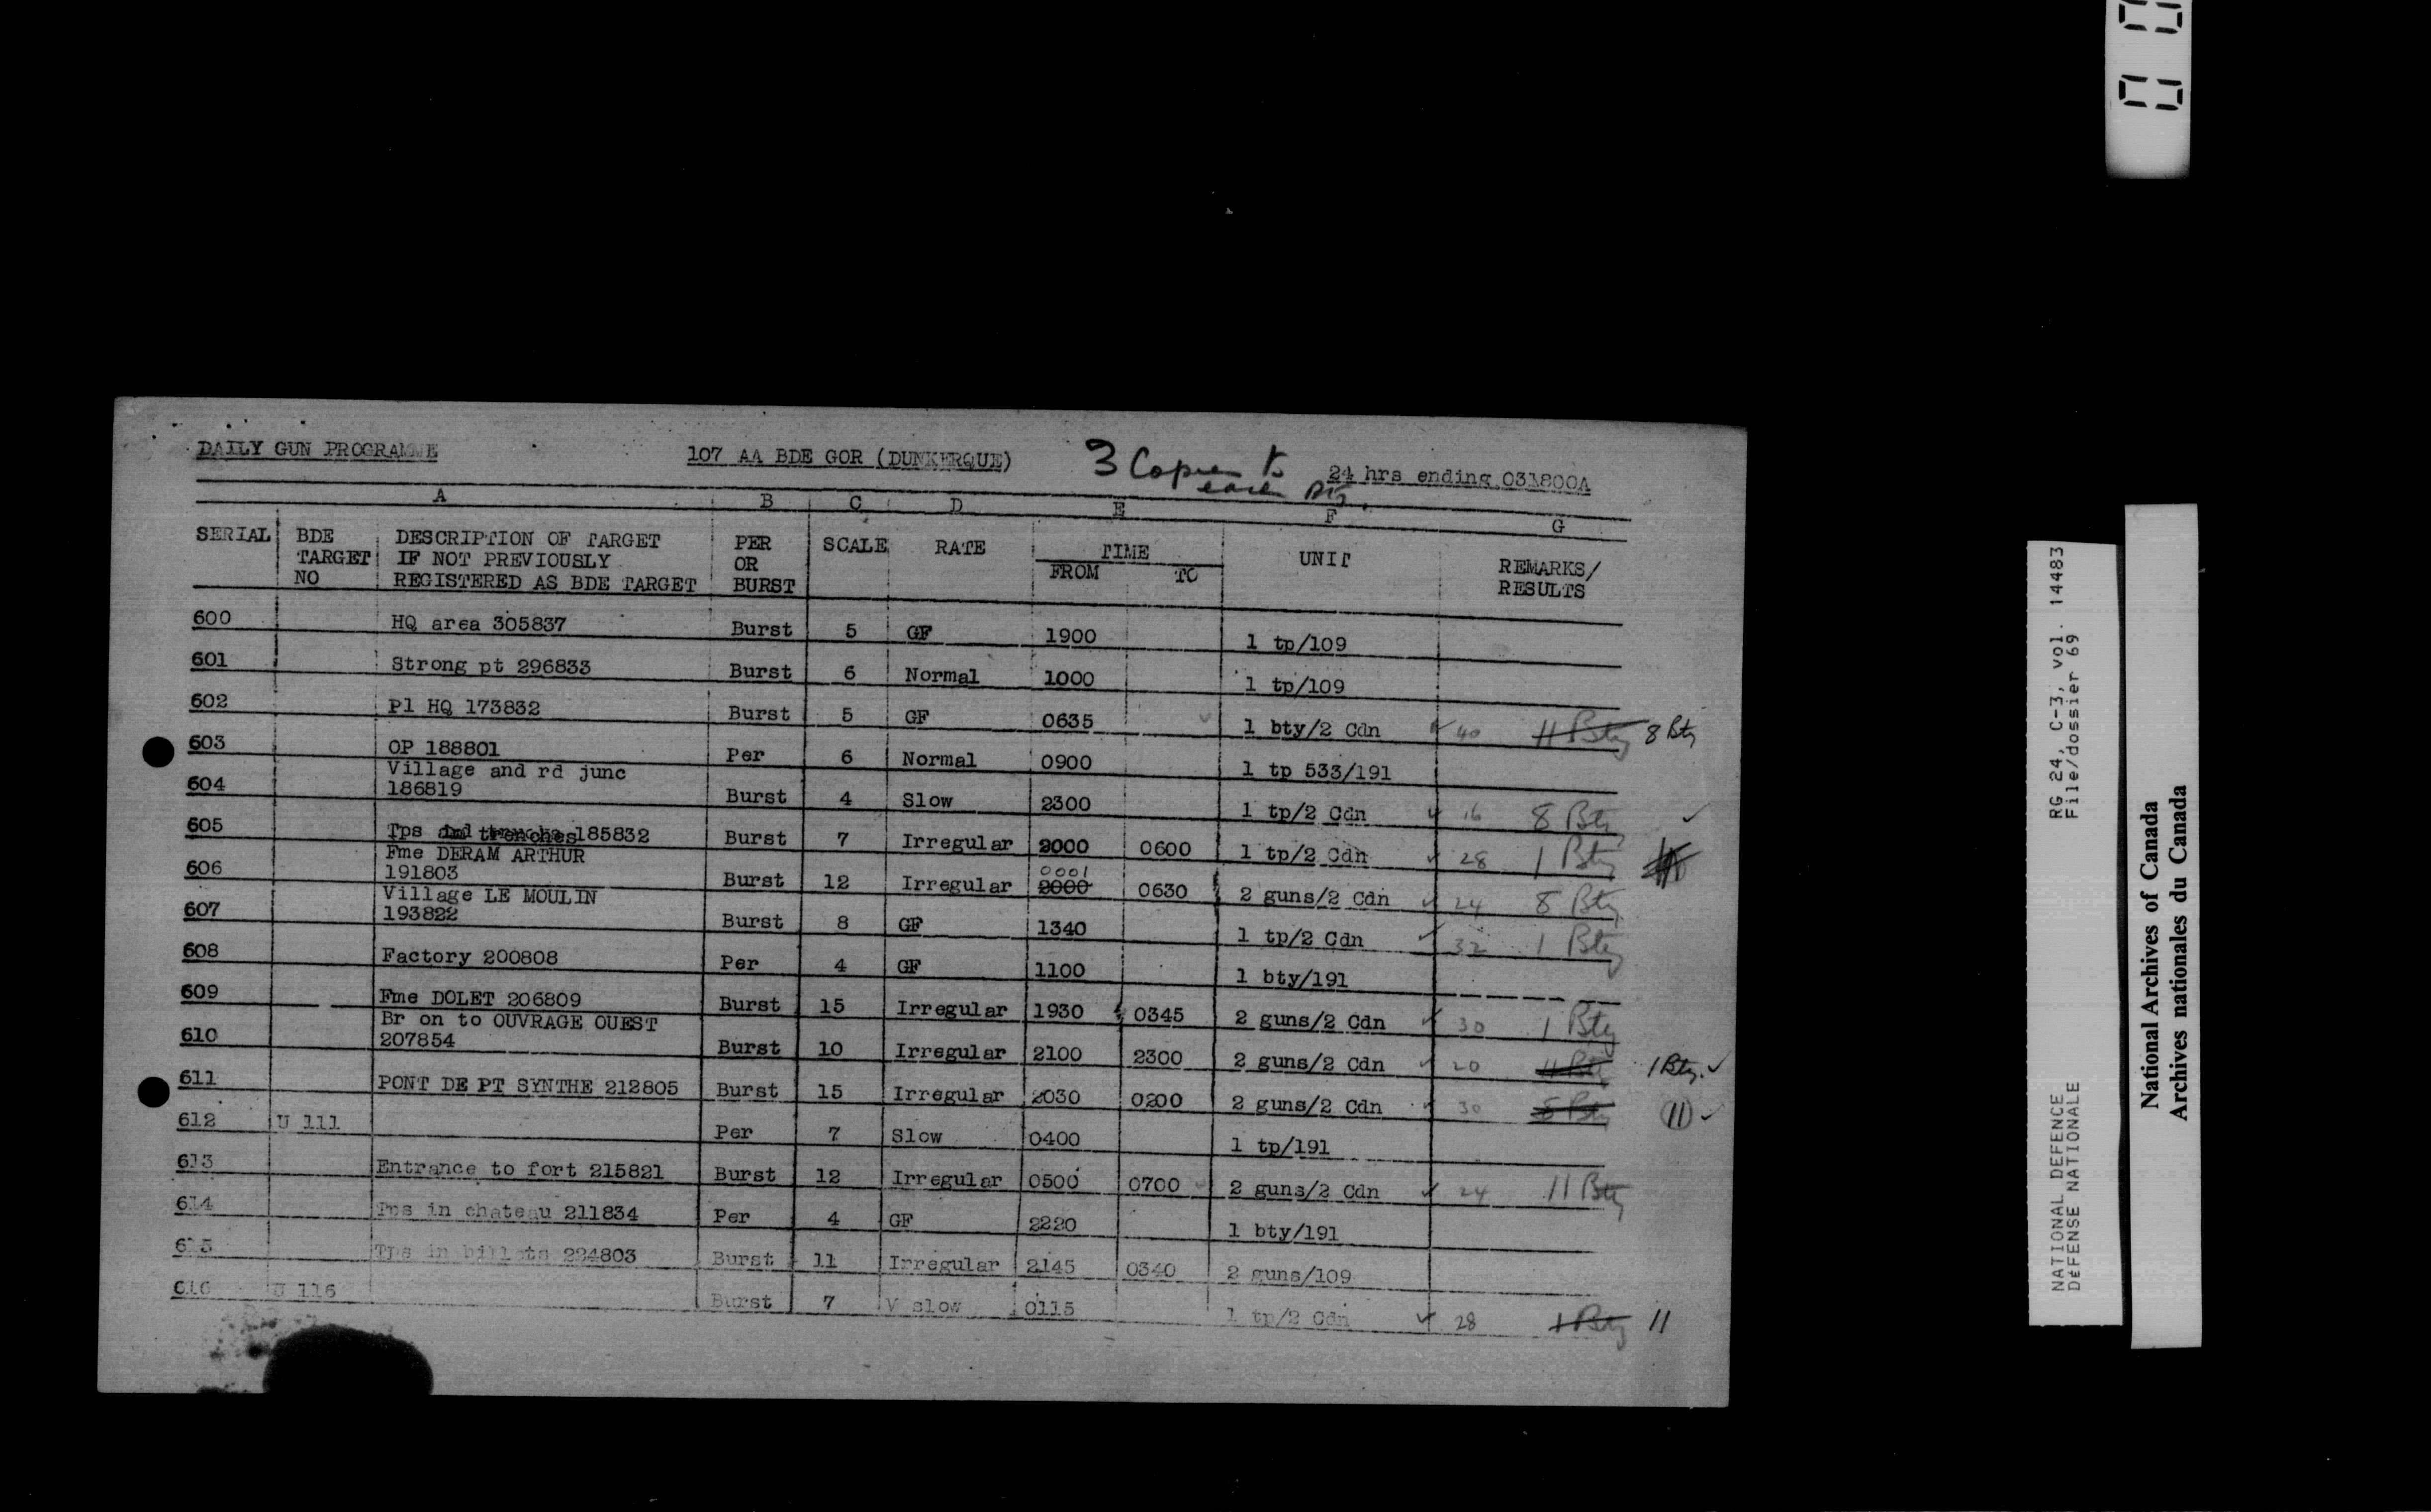 DAILY GUN PROGRAMME 107 AA BDE GOR (DUNKERQUE) 3 Copies to each Bty. 24 hrs ending 031800A
A B C D E F G
SERIAL BDE TARGET NO DESCRIPTION OF TARGET IF NOT PREVIOUSLY REGISTERED AS BDE TARGET PER OR BURST SCALE RATE TIME FROM TO UNIT REMARKS/ RESULTS
600 HQ area 305837 Burst 5 GF 1900 1 tp/109
601 Strong pt 296833 Burst 6 Normal 1000 1 tp/109
602 Pl HQ 173832 Burst 5 GF 0635 1 bty/2 Cdn ✓ 40 11 Bty 8 Bty
603 OP 188801 Per 6 Normal 0900 1 tp 533/191
604 Village and rd junc 186819 Burst 4 Slow 2300 1 tp/2 Cdn ✓ 16 8 Bty ✓
605 Tps in trenches 185832 Burst 7 Irregular 2000 0600 1 tp/2 Cdn ✓ 28 1 Bty
606 Fme DERAM ARTHUR 191803 Burst 12 Irregular 0001 2000 0630 2 guns/2 Cdn ✓ 24 8 Bty
607 Village LE MOULIN 193822 Burst 8 GF 1340 1 tp/2 Cdn ✓ 32 1 Bty
608 Factory 200808 Per 4 GF 1100 1 bty/191
609 Fme DOLET 206809 Burst 15 Irregular 1930 0345 2 guns/2 Cdn ✓ 30 1 Bty
610 Br on to OUVRAGE OUEST 207854 Burst 10 Irregular 2100 2300 2 guns/2 Cdn ✓ 20 11 Bty 1 Bty. ✓
611 PONT DE PT SYNTHE 212805 Burst 15 Irregular 2030 0200 2 guns/2 Cdn ✓ 30 8 Bty 11 ✓
612 U 111 Per 7 Slow 0400 1 tp/191
613 Entrance to fort 215821 Burst 12 Irregular 0500 0700 2 guns/2 Cdn ✓ 24 11 Bty
614 Tps in chateau 211834 Per 4 GF 2220 1 bty/191
615 Tps in billets 224803 Burst 11 Irregular 2145 0340 2 guns/109
616 U 116 Burst 7 V slow 0115 1 tp/2 Cdn ✓ 28 1 Bty 11
NATIONAL DEFENCE RG 24, C-3, vol. 14483
DÉFENSE NATIONALE File/dossier 69
National Archives of Canada
Archives nationales du Canada